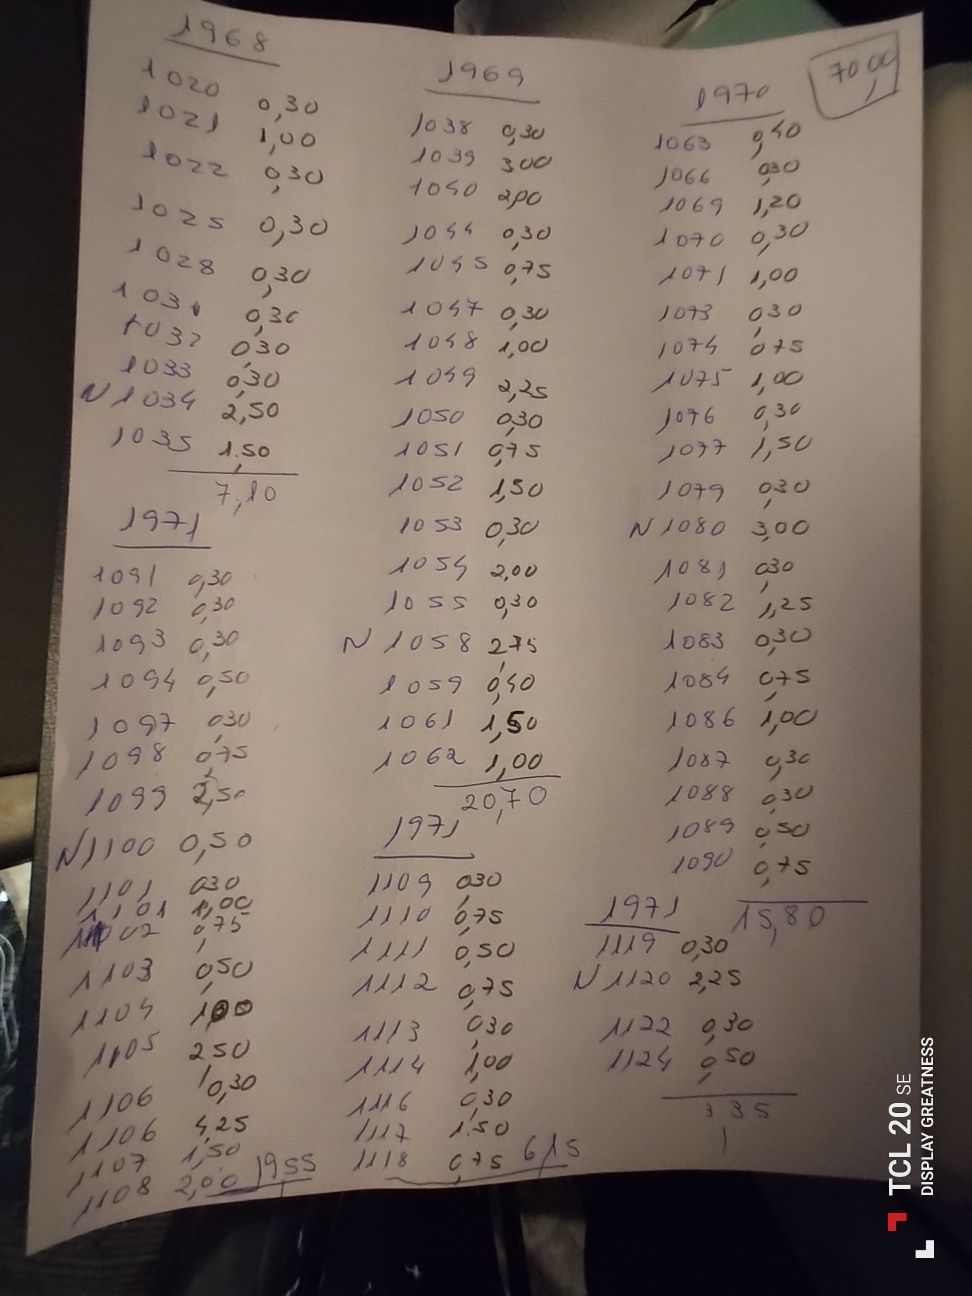 1968
1020 0,30
1021 1,00
1022 0,30
1025 0,30
1028 0,30
1031 0,30
1032 0,30
1033 0,30
N 1034 2,50
1035 1,50
7,10
1971
1091 0,30
1092 0,30
1093 0,30
1094 0,50
1097 0,30
1098 0,75
1099 2,50
N 1100 0,50
1101 0,30
1101 1,00
1102 0,75
1103 0,50
1104 1,00
1105 2,50
1106 0,30
1106 4,25
1107 1,50
1108 2,00
19,55
1969
1038 0,30
1039 3,00
1040 2,00
1044 0,30
1045 0,75
1047 0,30
1048 1,00
1049 2,25
1050 0,30
1051 0,75
1052 1,50
1053 0,30
1054 2,00
1055 0,30
N 1058 2,75
1059 0,40
1061 1,50
1062 1,00
20,70
1971
1109 0,30
1110 0,75
1111 0,50
1112 0,75
1113 0,30
1114 1,00
1116 0,30
1117 1,50
1118 0,75
6,15
70,00
1970
1063 0,40
1066 0,30
1069 1,20
1070 0,30
1071 1,00
1073 0,30
1074 0,75
1075 1,00
1076 0,30
1077 1,50
1079 0,30
N 1080 3,00
1081 0,30
1082 1,25
1083 0,30
1084 0,75
1086 1,00
1087 0,30
1088 0,30
1089 0,50
1090 0,75
15,80
1971
1119 0,30
N 1120 2,25
1122 0,30
1124 0,50
3,35
TCL 20 SE
DISPLAY GREATNESS